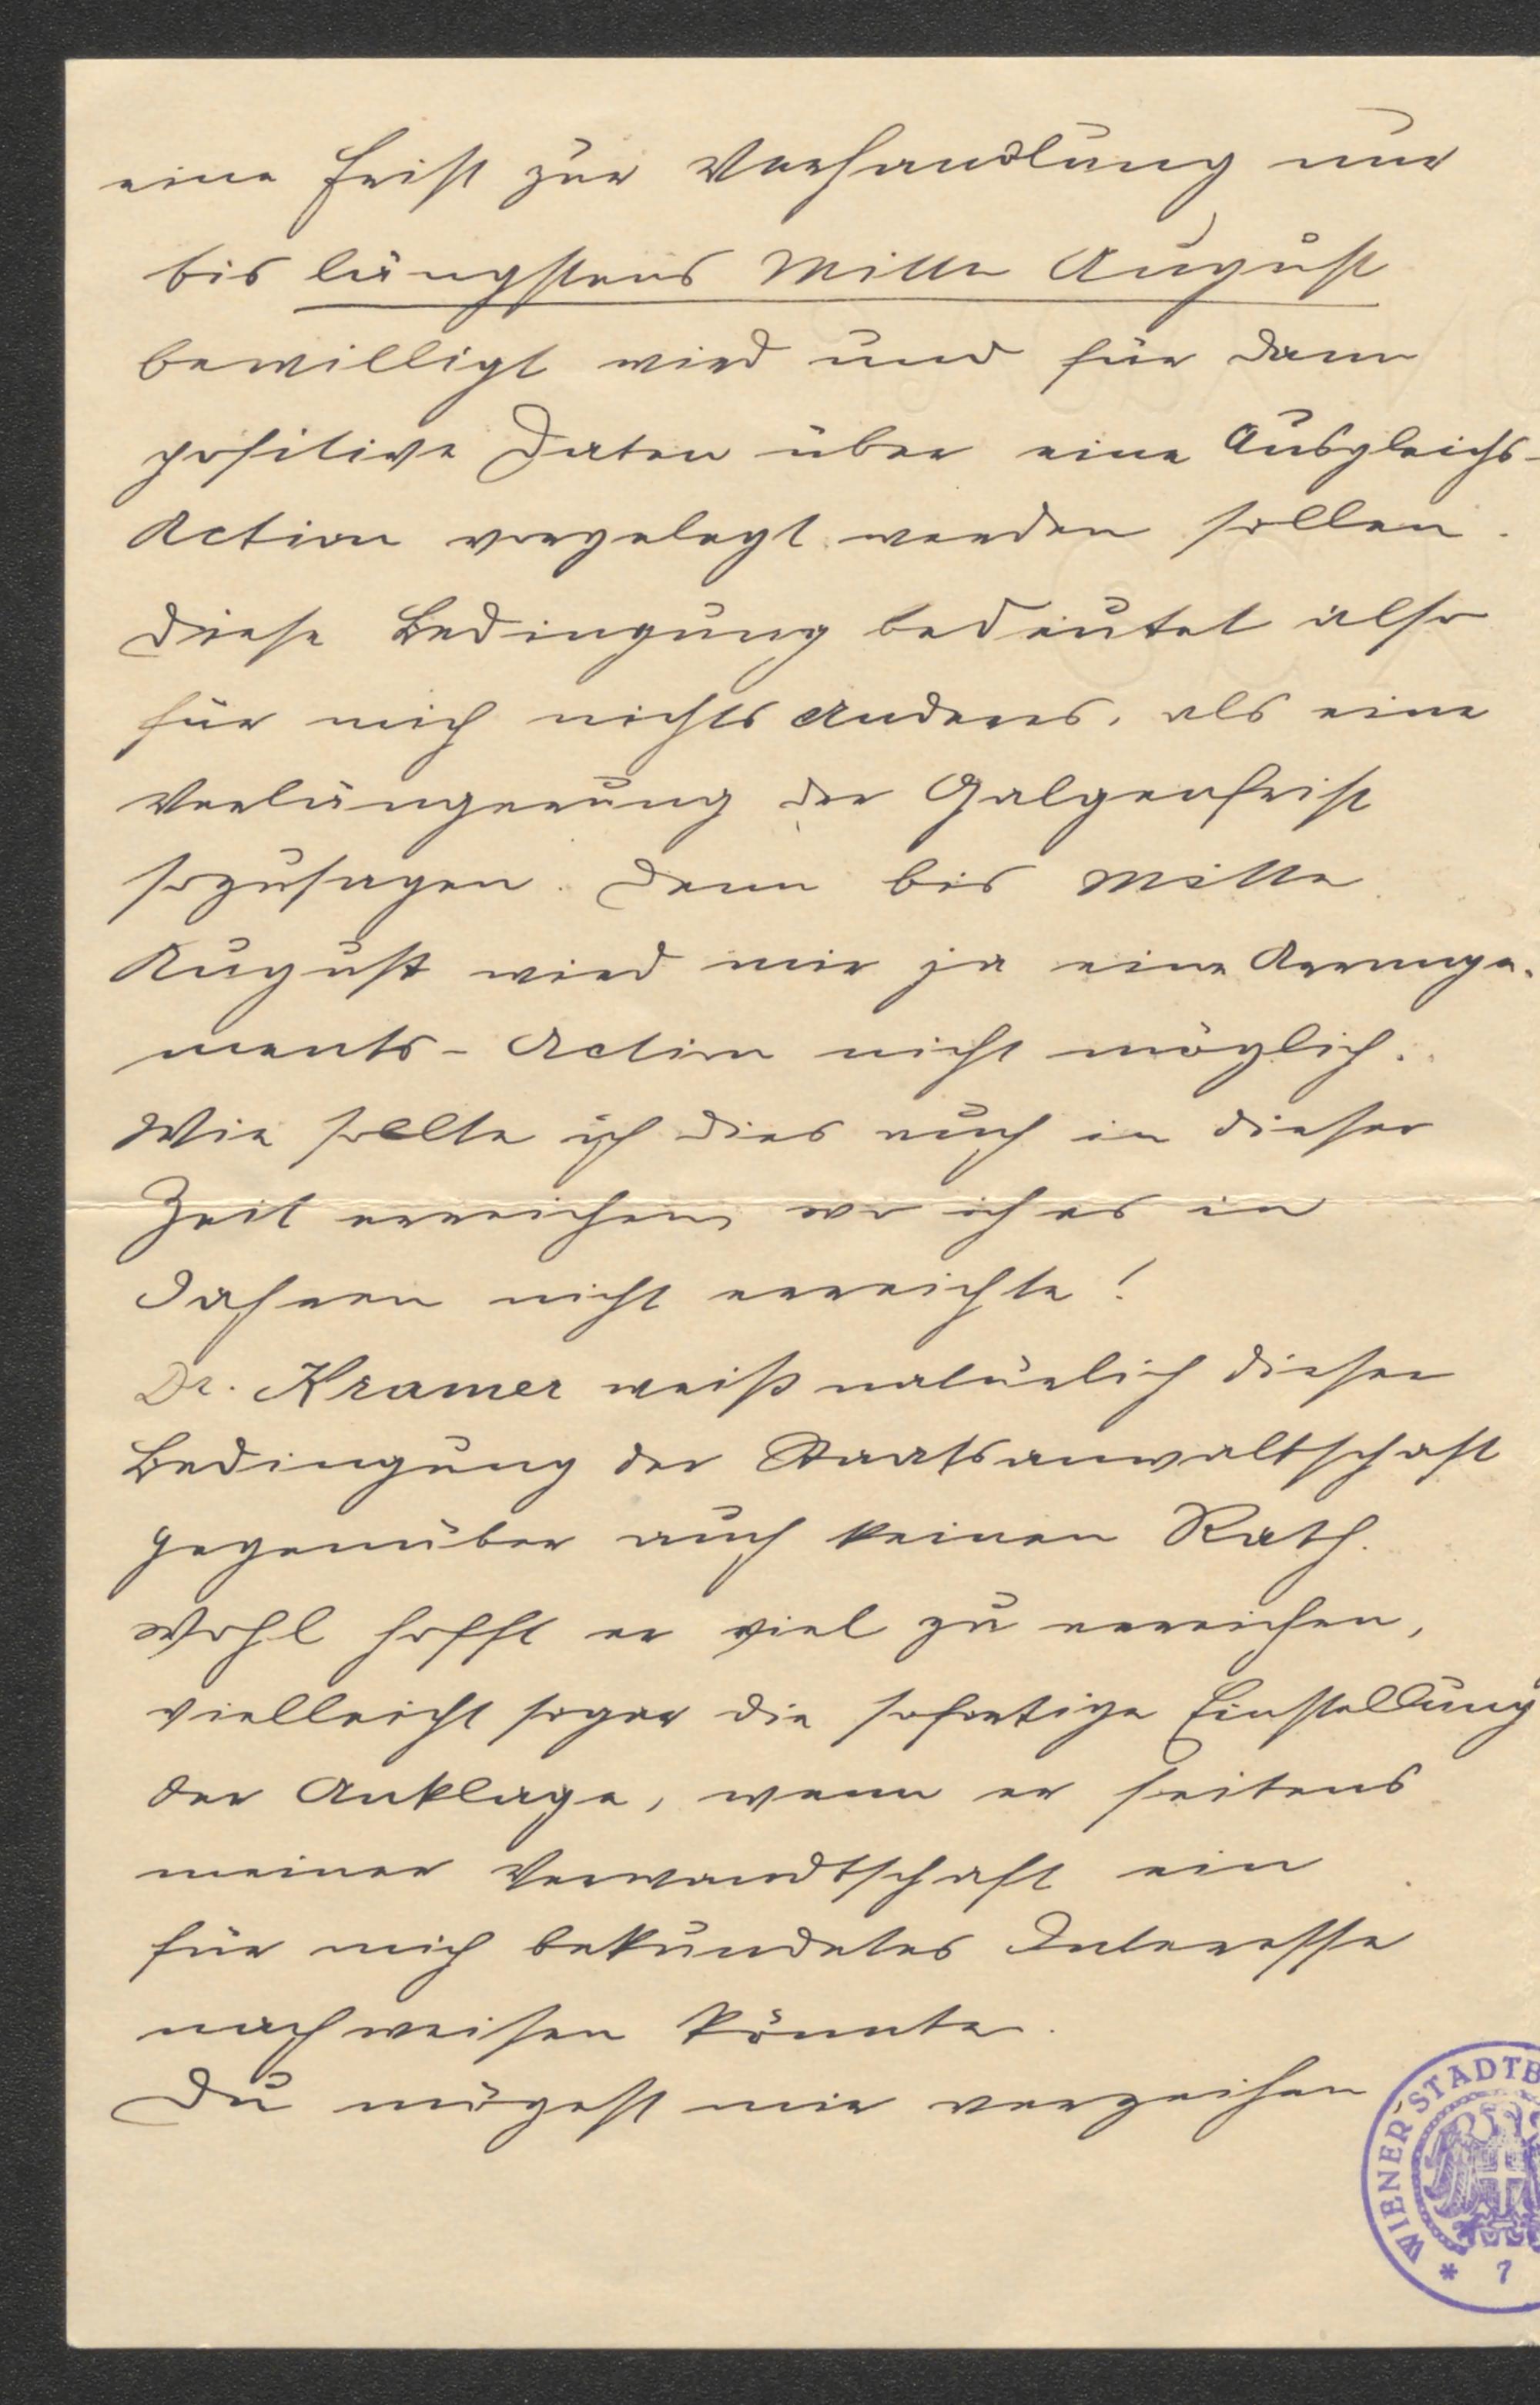 eine Frist zur Verhandlung nur
bis längstens Mitte August
bewilligt wird und für dann
positive Daten über eine Ausgleichs-
Action vorgelegt werden sollen.
Diese Bedingung bedeutet also
für mich nichts Anderes, als eine
Verlängerung der Galgenfrist
sozusagen. Denn bis Mitte
August wird mir ja eine Arrange-
ments-Action nicht möglich.
Wie sollte ich dies auch in dieser
Zeit erreichen, wo ich es in
Jahren nicht erreichte!
Dr. Kramer weiß natürlich dieser
Bedingung der Staatsanwaltschaft
gegenüber auch keinen Rath.
Wohl hofft er viel zu erreichen,
vielleicht sogar die sofortige Einstellung
der Anklage, wenn er seitens
meiner Verwandtschaft ein
für mich bekundetes Interesse
nachweisen könnte.
Du mögest mir verzeihen
WIENER STADTB
* 7